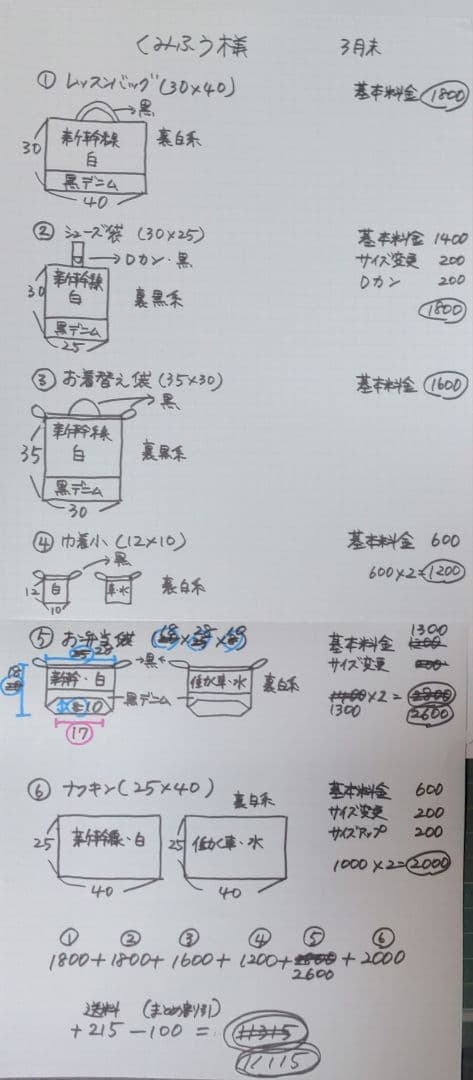 くみふう様 3月末
① レッスンバッグ(30×40) 基本料金 1800
黒
30 新幹線 白 裏白系
黒デニム
40
② シューズ袋 (30×25) 基本料金 1400
サイズ変更 200
Dカン・黒 Dカン 200
30 新幹線 白 裏黒系 1800
黒デニム
25
③ お着替え袋 (35×30) 基本料金 1600
黒
35 新幹線 白 裏黒系
黒デニム
30
④ 巾着小 (12×10) 基本料金 600
黒 600×2=1200
12 白 車・水 裏白系
10
⑤ お弁当袋 1300
基本料金 1200
28 黒 サイズ変更
18 新幹・白 車・水 裏白系 ×2=
黒デニム 1300 2600
10
17
⑥ ナフキン (25×40) 基本料金 600
裏白系 サイズ変更 200
25 新幹線・白 25 車・水 サイズアップ 200
1000×2=2000
40 40
① ② ③ ④ ⑤ ⑥
1800+1800+1600+1200+2800+2000
2600
送料 (まとめ割引)
+215-100=11315
11115